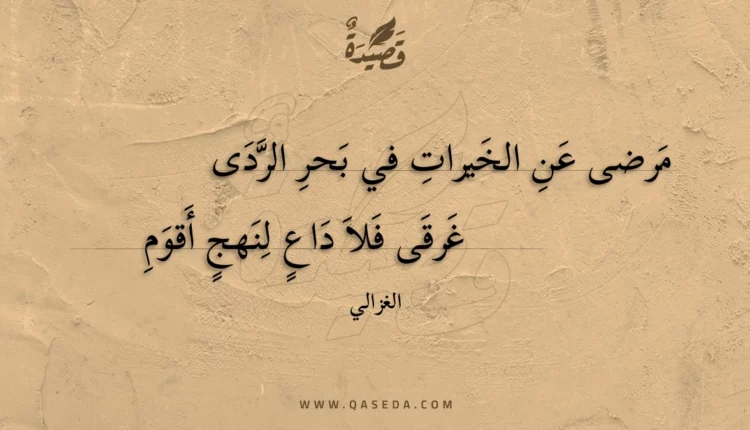 قَصِيدَةٌ
مَرضى عَنِ الخَيراتِ في بَحرِ الرَّدَى
غَرقَى فَلاَ دَاعٍ لِنَهجٍ أَقوَمِ
الغزالي
WWW.QASEDA.COM